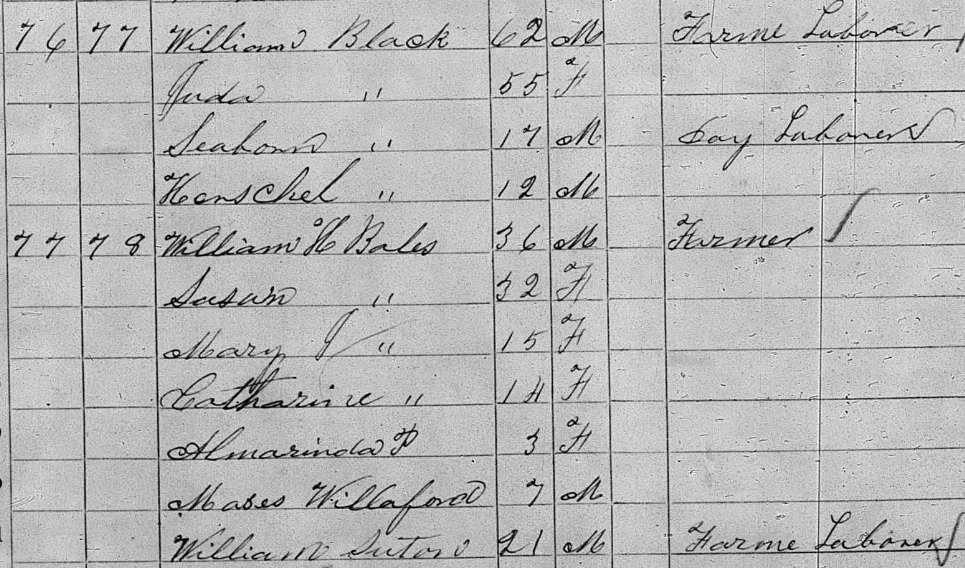 76 77 William Black 62 M Farme Laborer
Juda " 55 F
Seaborn " 17 M Day Laborer
Henschel " 12 M
77 78 William H Bales 36 M Farmer
Susan " 32 F
Mary J " 15 F
Catharine " 14 F
Almarinda P 3 F
Moses Willaford 7 M
William Suton 21 M Farme Laborer